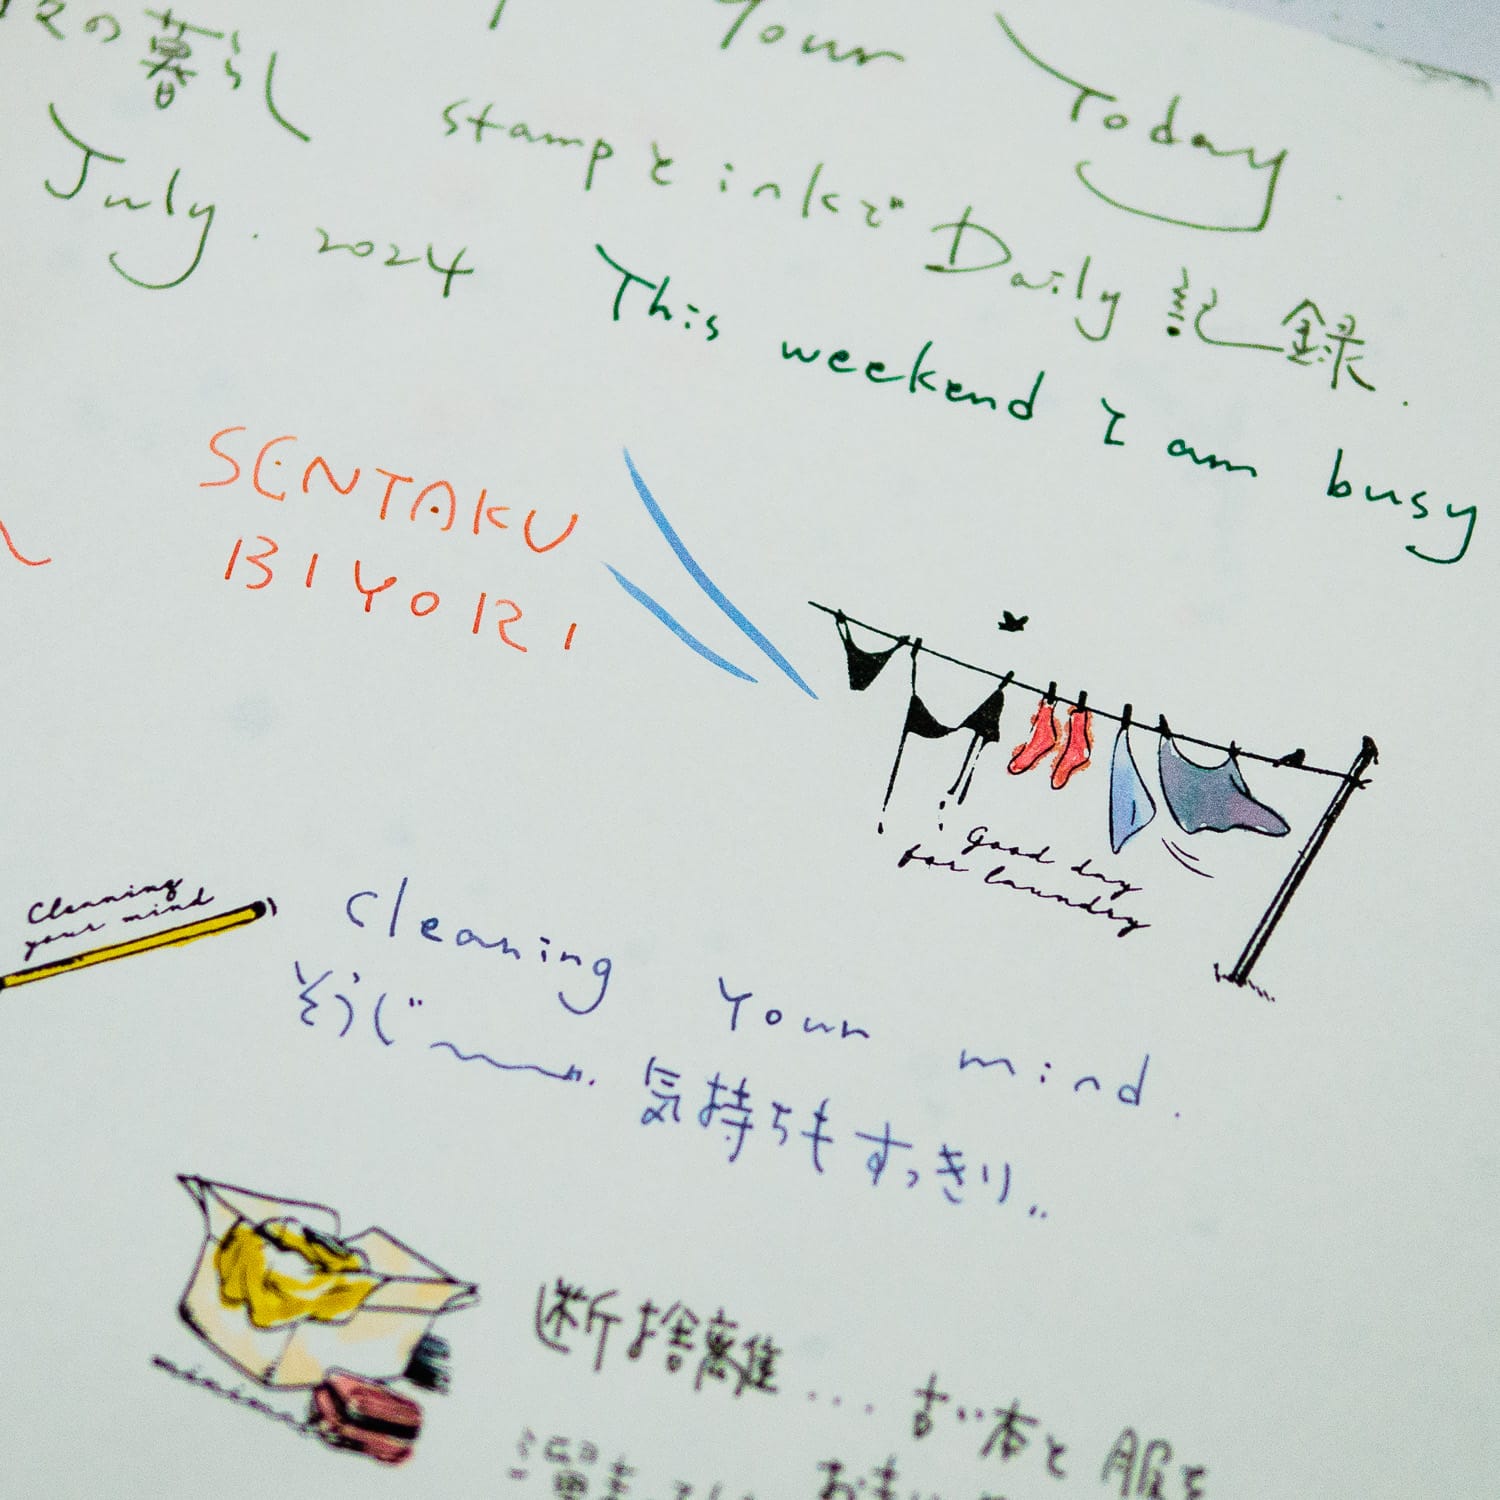 の暮らし Your Today
stampとinkでDaily記録.
July. 2024 This weekend I am busy
SENTAKU
BIYORI
Good day
for laundry
Cleaning
your mind
Cleaning Your mind.
そうじ〜〜. 気持ちもすっきり..
minimal
断捨離... 古い本と服を